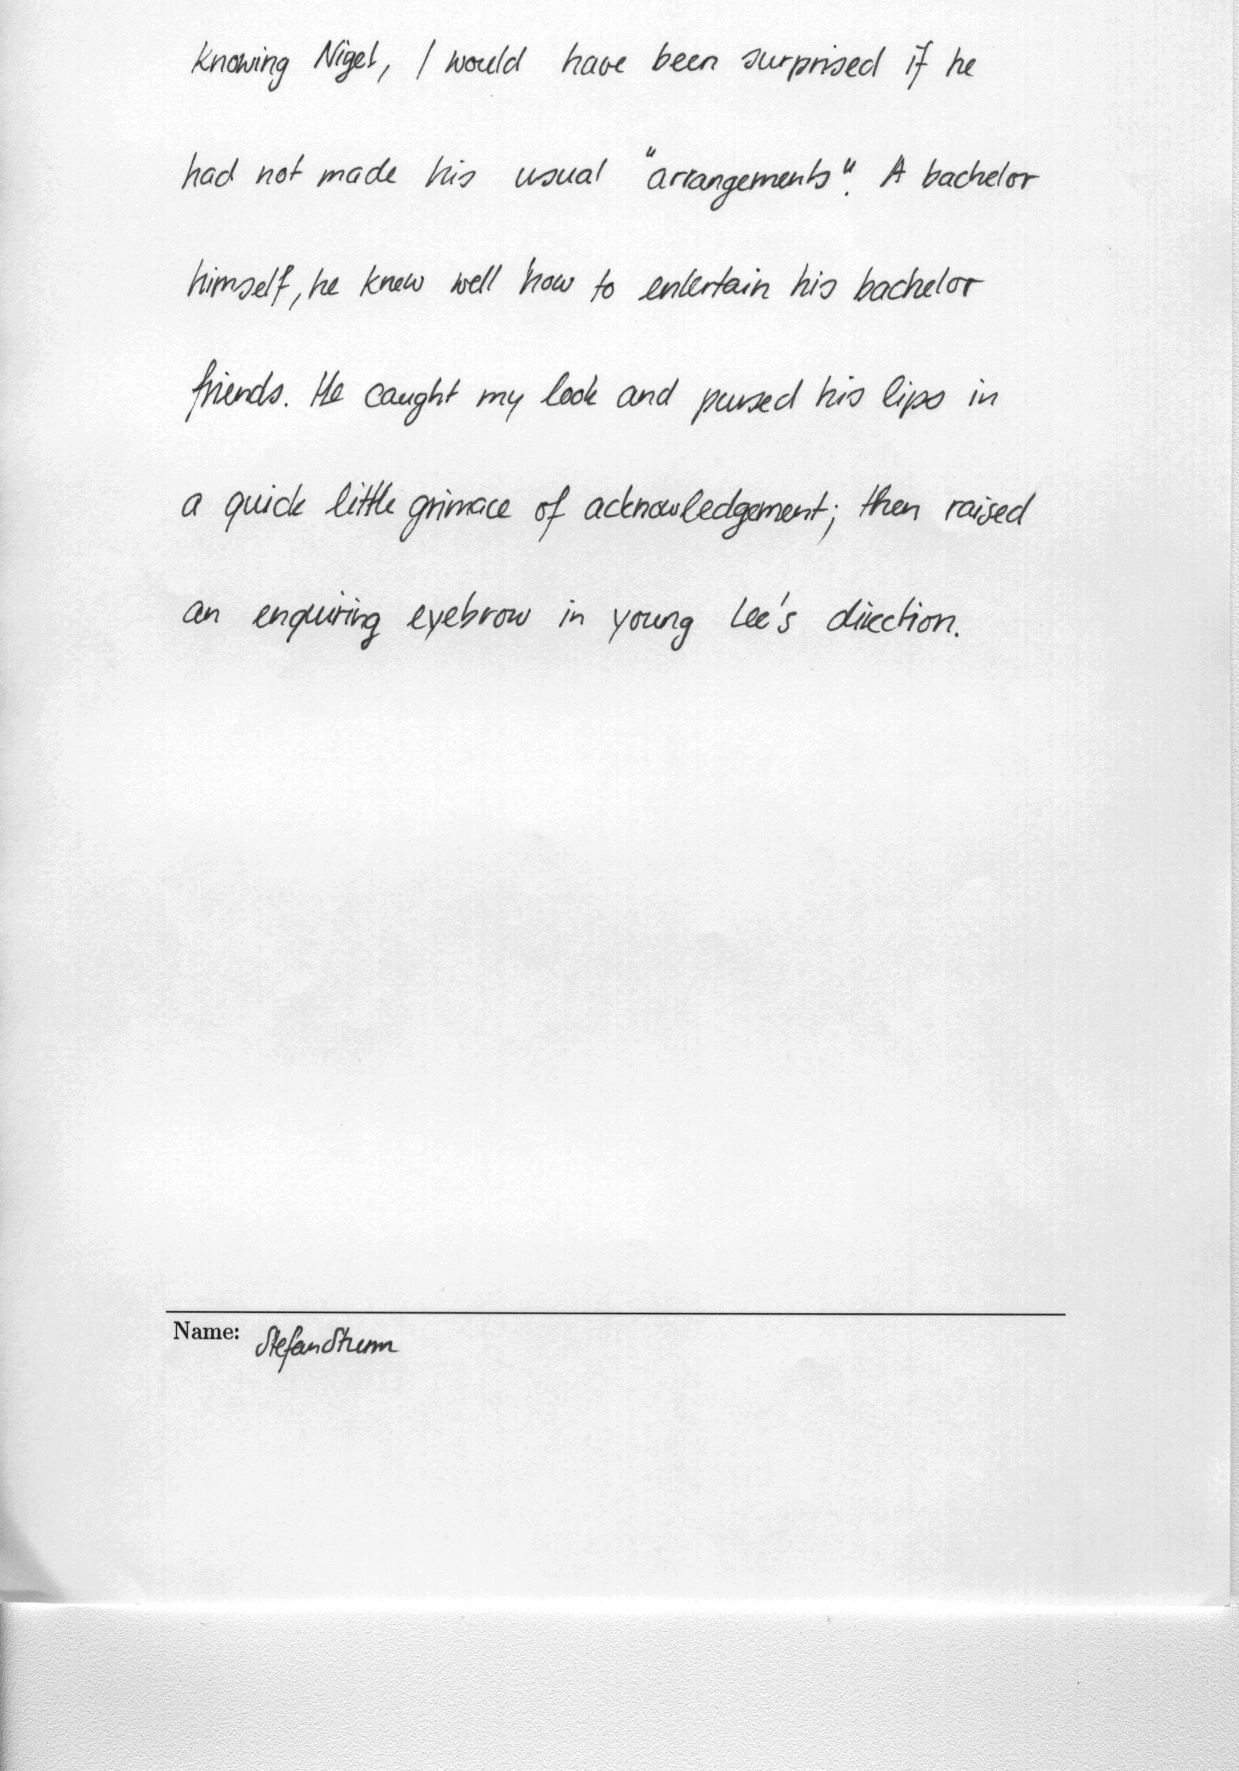 Knowing Nigel, I would have been surprised if he
had not made his usual "arrangements". A bachelor
himself, he knew well how to entertain his bachelor
friends. He caught my look and pursed his lips in
a quick little grimace of acknowledgement; then raised
an enquiring eyebrow in young Lee's direction.
Name: Stefan Sturm